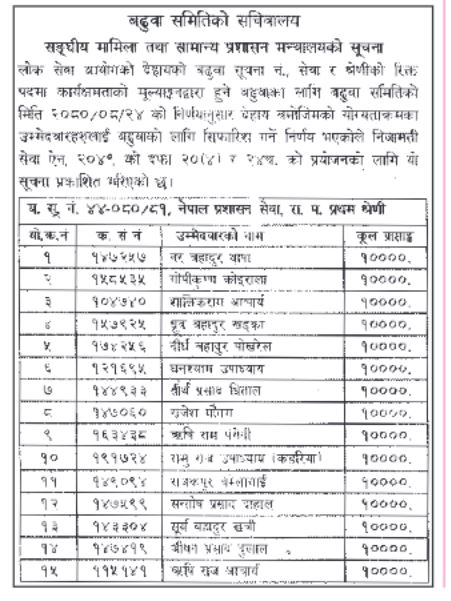 बढुवा समितिको सचिवालय
सङ्घीय मामिला तथा सामान्य प्रशासन मन्त्रालयको सूचना
लोक सेवा आयोगको देहायको बढुवा सूचना नं., सेवा र श्रेणीको रिक्त
पदमा कार्यक्षमताको मूल्याङ्कनद्वारा हुने बढुवाका लागि बढुवा समितिको
मिति २०८०/०८/२४ को निर्णयानुसार देहाय बमोजिमको योग्यताक्रमका
उम्मेदवारहरुलाई बढुवाको लागि सिफारिश गर्ने निर्णय भएकोले निजामती
सेवा ऐन, २०४९, को दफा २०(४) र २४ख. को प्रयोजनको लागि यो
सूचना प्रकाशित गरिएको छ।
ब. सू. नं. ४४-०८०/८१, नेपाल प्रशासन सेवा, रा. प. प्रथम श्रेणी
यो.क्र.नं क. सं नं उम्मेदवारको नाम कूल प्राप्ताङ्क
१ १४७२५७ नर बहादुर थापा १००००.
२ १५८५३५ गोपीकृष्ण कोइराला १००००.
३ १०४७४० शालिकराम आचार्य १००००.
४ १५७९२५ ध्रुव बहादुर खड्का १००००.
५ १७४२५६ दीर्घ बहादुर पोखरेल १००००.
६ १२१६९५ घनश्याम उपाध्याय १००००.
७ १४४९३३ तीर्थ प्रसाद धिताल १००००.
८ १४७०६० राजेश गौतम १००००.
९ १६३४३८ ऋषि राम पंगेनी १००००.
१० १९१७२४ रामु राज उपाध्याय (कडरिया) १००००.
११ १४९०९४ राजकपूर १००००.
१२ १४७५९९ सन्तोष प्रसाद दाहाल १००००.
१३ १४३३०४ सूर्य बहादुर खत्री १००००.
१४ १४७४१९ भीषण प्रसाद भुसाल १००००.
१५ ११५१४१ ऋषि राज आचार्य १००००.